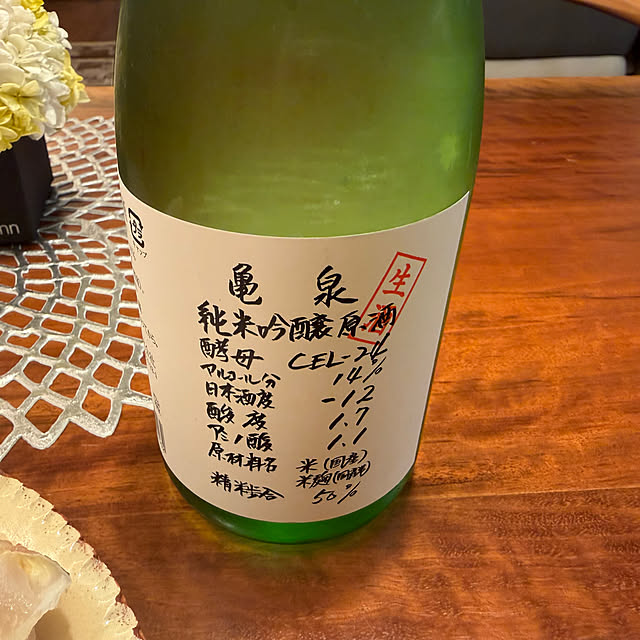 亀泉
生酒
純米吟醸原酒
酵母 CEL-24
アルコール分 14%
日本酒度 -12
酸度 1.7
アミノ酸 1.1
原材料名 米(国産)
米麹(国産米)
精米歩合 50%
nn